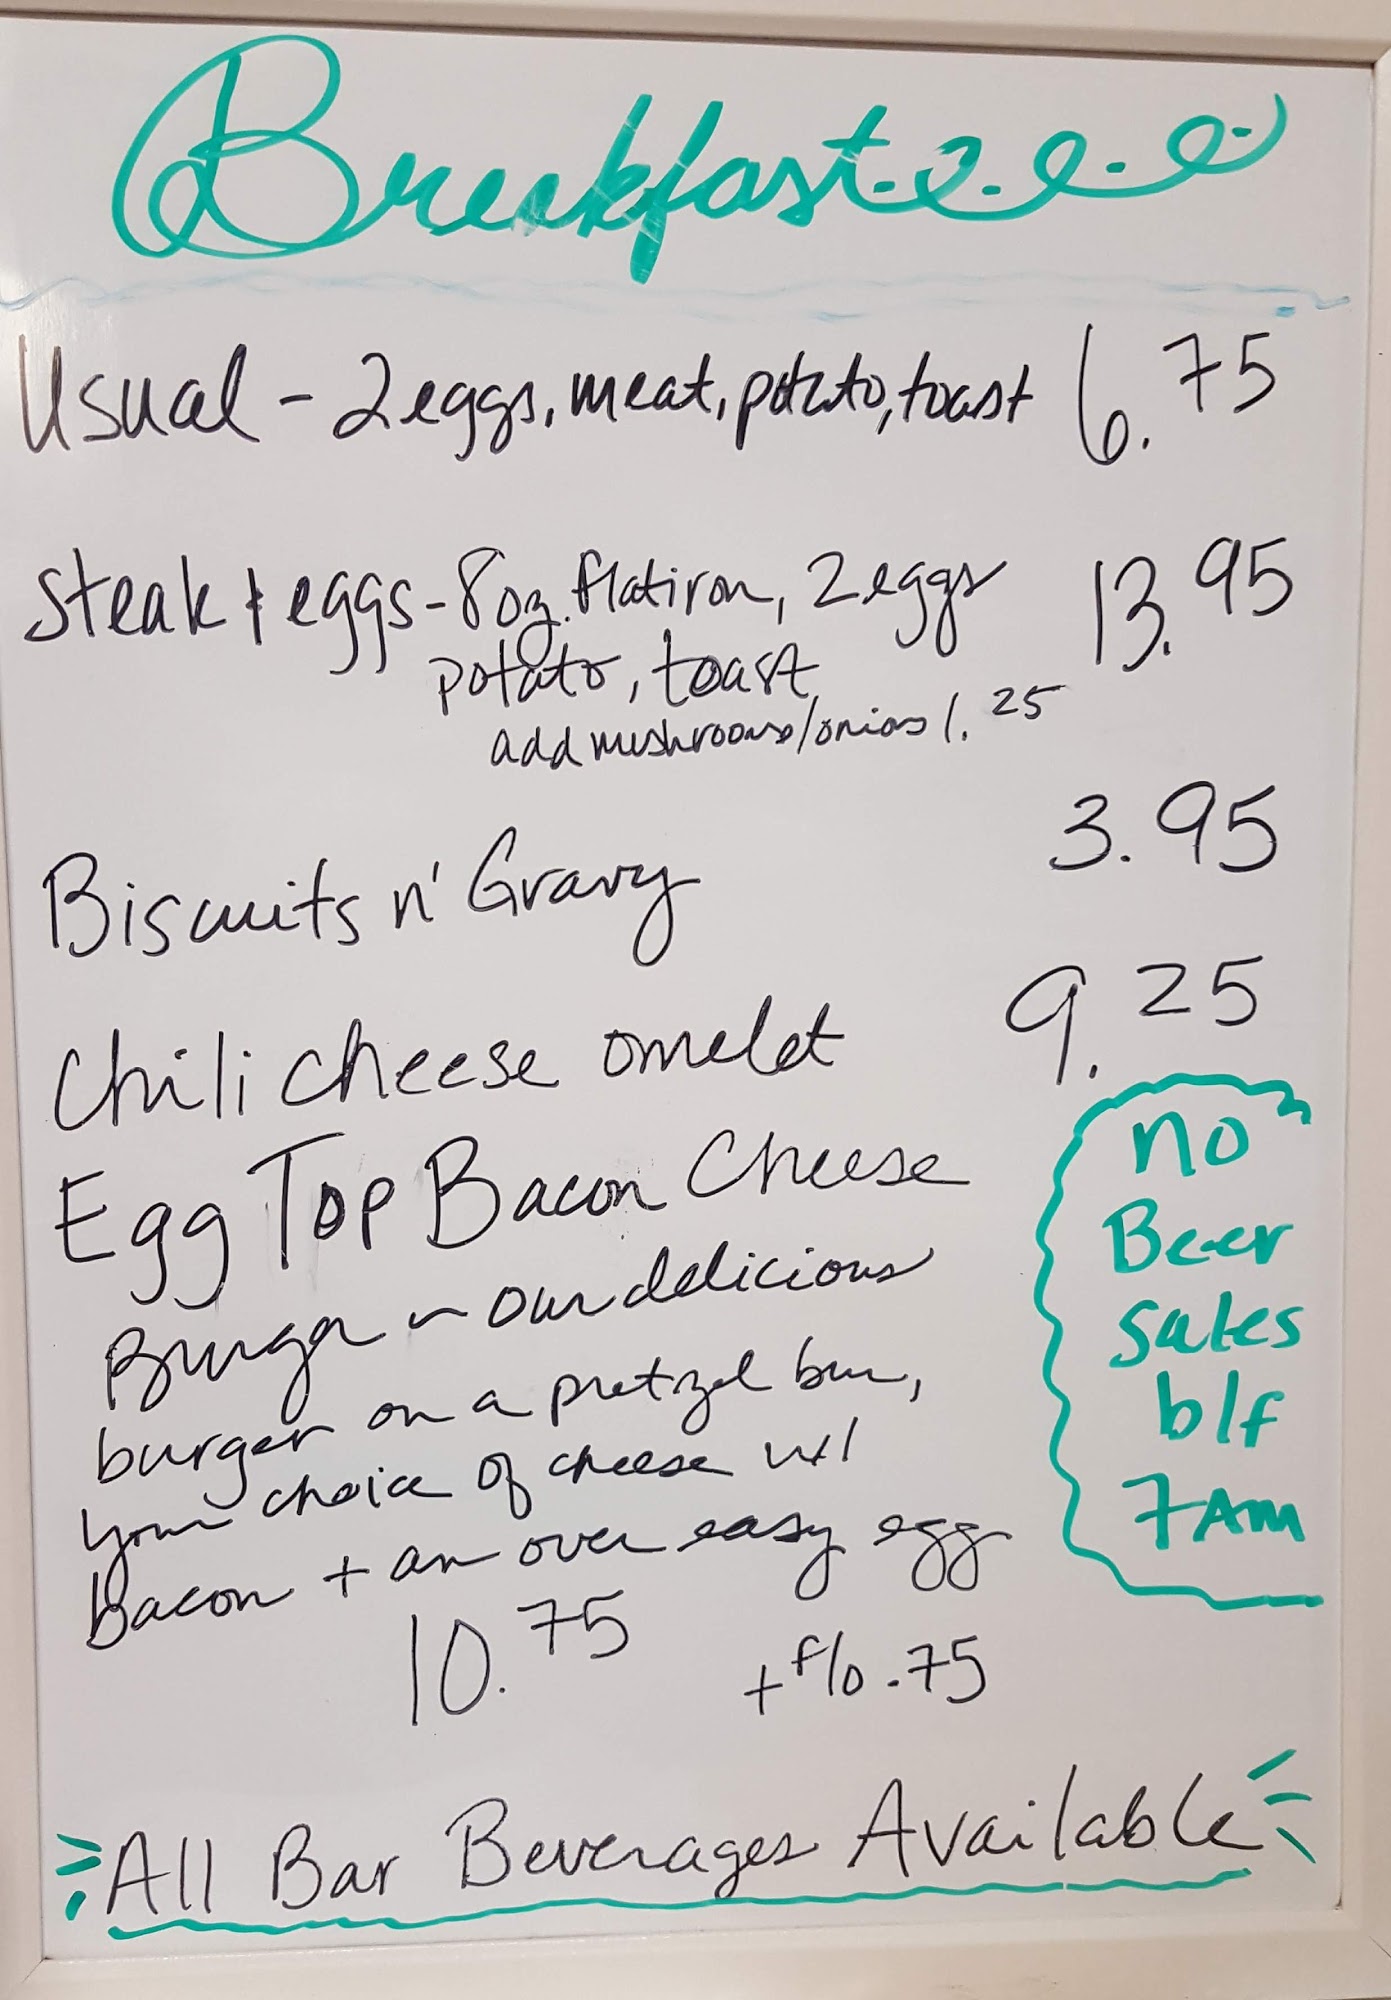 Breakfast
Usual - 2 eggs, meat, potato, toast 6.75
Steak + eggs - 8oz. flatiron, 2 eggs 13.95
potato, toast
add mushrooms/onions 1.25
Biscuits n' Gravy 3.95
Chili cheese omelet 9.25
Egg Top Bacon Cheese
Burger ~ our delicious
burger on a pretzel bun,
your choice of cheese w/
bacon + an over easy egg
10.75 + f/o .75
no
Beer
Sales
b/f
7Am
All Bar Beverages Available